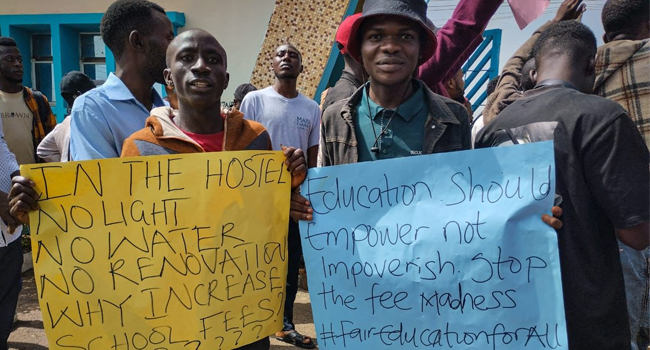 IN THE HOSTEL
NO LIGHT
NO WATER
NO RENOVATION
WHY INCREASE
SCHOOL FEES?
Education Should
Empower not
Impoverish. Stop
the fee madness
#FairEducationforAll